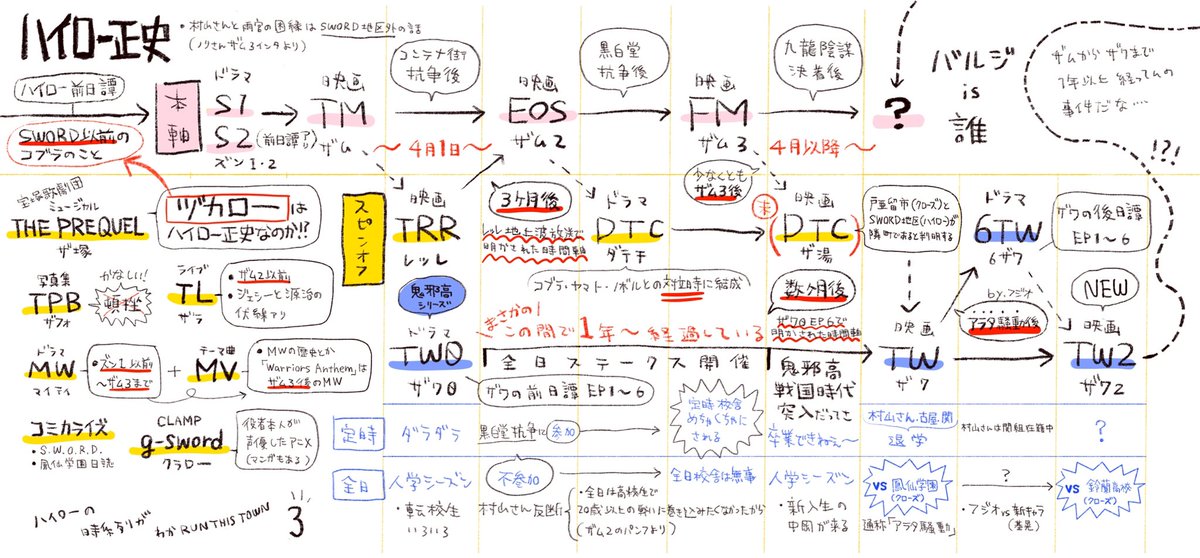 ハイロー正史
・村山さんと雨宮の因縁は SWORD地区外の話
(ノリさんザム3インタより)
ハイロー前日譚
SWORD以前の
コブラのこと
本軸
ドラマ
S1
S2
(前日譚アリ)
ズン1・2
映画
TM
ザム
コンテナ街
抗争後
〜4月1日〜
映画
EOS
ザム2
黒白堂
抗争後
映画
FM
ザム3
九龍陰謀
決着後
4月以降〜
?
バルジ
is
誰
ザムからザワまで
1年以上 経ってんの
事件だな…
!?!
宝塚歌劇団
ミュージカル
THE PREQUEL
ザ塚
ヅカローは
ハイロー正史なのか!?
写真集
TPB
ザフォ
かなしい!
頓挫
ライブ
TL
ザラ
・ザム2以前
・ジェシーと源治の
伏線アリ
ドラマ
MW
マイティ
・ズン1以前
〜ザム3まで
+
テーマ曲
MV
・MWの歴史とか
「Warriors Anthem」は
ザム3後のMW
コミカライズ
・S.W.O.R.D.
・鳳仙学園日誌
CLAMP
g-sword
クラロー
役者本人が
声優したアニメ
(マンガもある)
ハイローの
時系列が
わか RUN THIS TOWN
スピンオフ
映画
TRR
レッレ
3ヶ月後
レッレ地上波放送で
明かされた時間軸
ドラマ
DTC
ダテチ
コブラ・ヤマト・ノボルとの対立時に結成
少なくとも
ザム3後
映画
DTC
ザ湯
戸亜留市(クローズ)と
SWORD地区(ハイロー)が
隣町であると判明する
ドラマ
6TW
6ザワ
ザワの後日譚
EP1〜6
鬼邪高
シリーズ
ドラマ
TW0
ザワ0
まさかの!
この間で1年〜経過している
全日ステークス開催
ザワの前日譚EP1〜6
数ヶ月後
ザワ0 EP6で
明かされた時間軸
鬼邪高
戦国時代
突入だってさ
映画
TW
ザワ
by.フジオ
アラタ騒動後
NEW
映画
TW2
ザワ2
定時
ダラダラ
黒白堂抗争に参加
定時校舎
めちゃくちゃに
される
卒業できねえ〜
村山さん、古屋、関
退学
村山さんは関組在籍中
?
全日
入学シーズン
・転校生
いろいろ
不参加
村山さん反断
・全日は高校生で
20歳以上の戦いに巻きこみたくなかったから
(ザム2のパンフより)
全日校舎は無事
入学シーズン
・新入生の
中岡が来る
VS 鳳仙学園
(クローズ)
通称「アラタ騒動」
?
・フジオ VS 新キャラ
VS 鈴蘭高校
(クローズ)